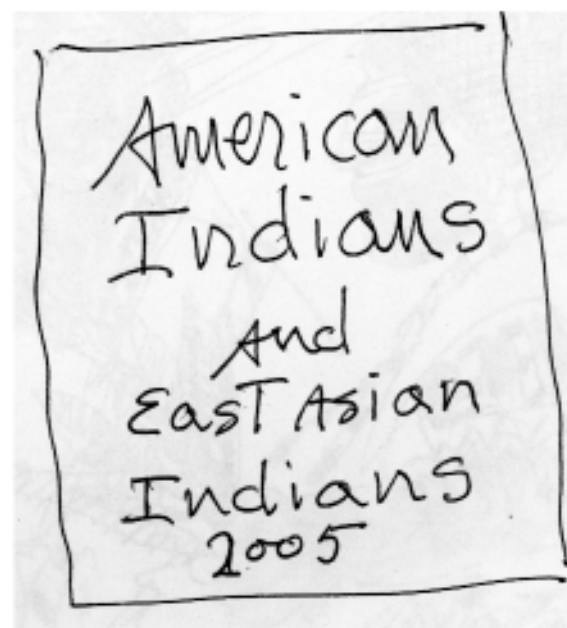 American
Indians
And
East Asian
Indians
2005